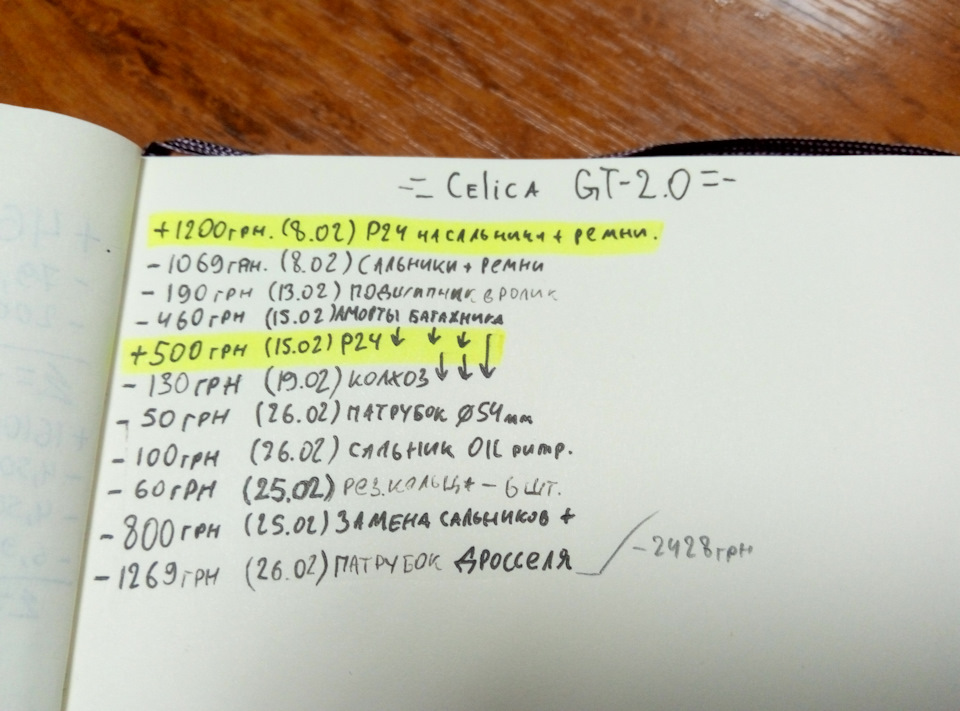 -= CELICA GT-2.0 =-
+1200грн. (8.02) P24 на сальники + ремни.
-1069грн. (8.02) Сальники + ремни
-190грн (13.02) подшипник в ролик
-460грн (15.02) Аморты багажника
+500грн (15.02) P24 ↓ ↓ ↓ ↓
-130грн (19.02) колхоз ↓ ↓ ↓
-50грн (26.02) патрубок ø54мм
-100грн (26.02) сальник OIL
-60грн (25.02) рез. кольца - 6 шт.
-800грн (25.02) Замена сальников +
-1269грн (26.02) патрубок дросселя
-2428грн